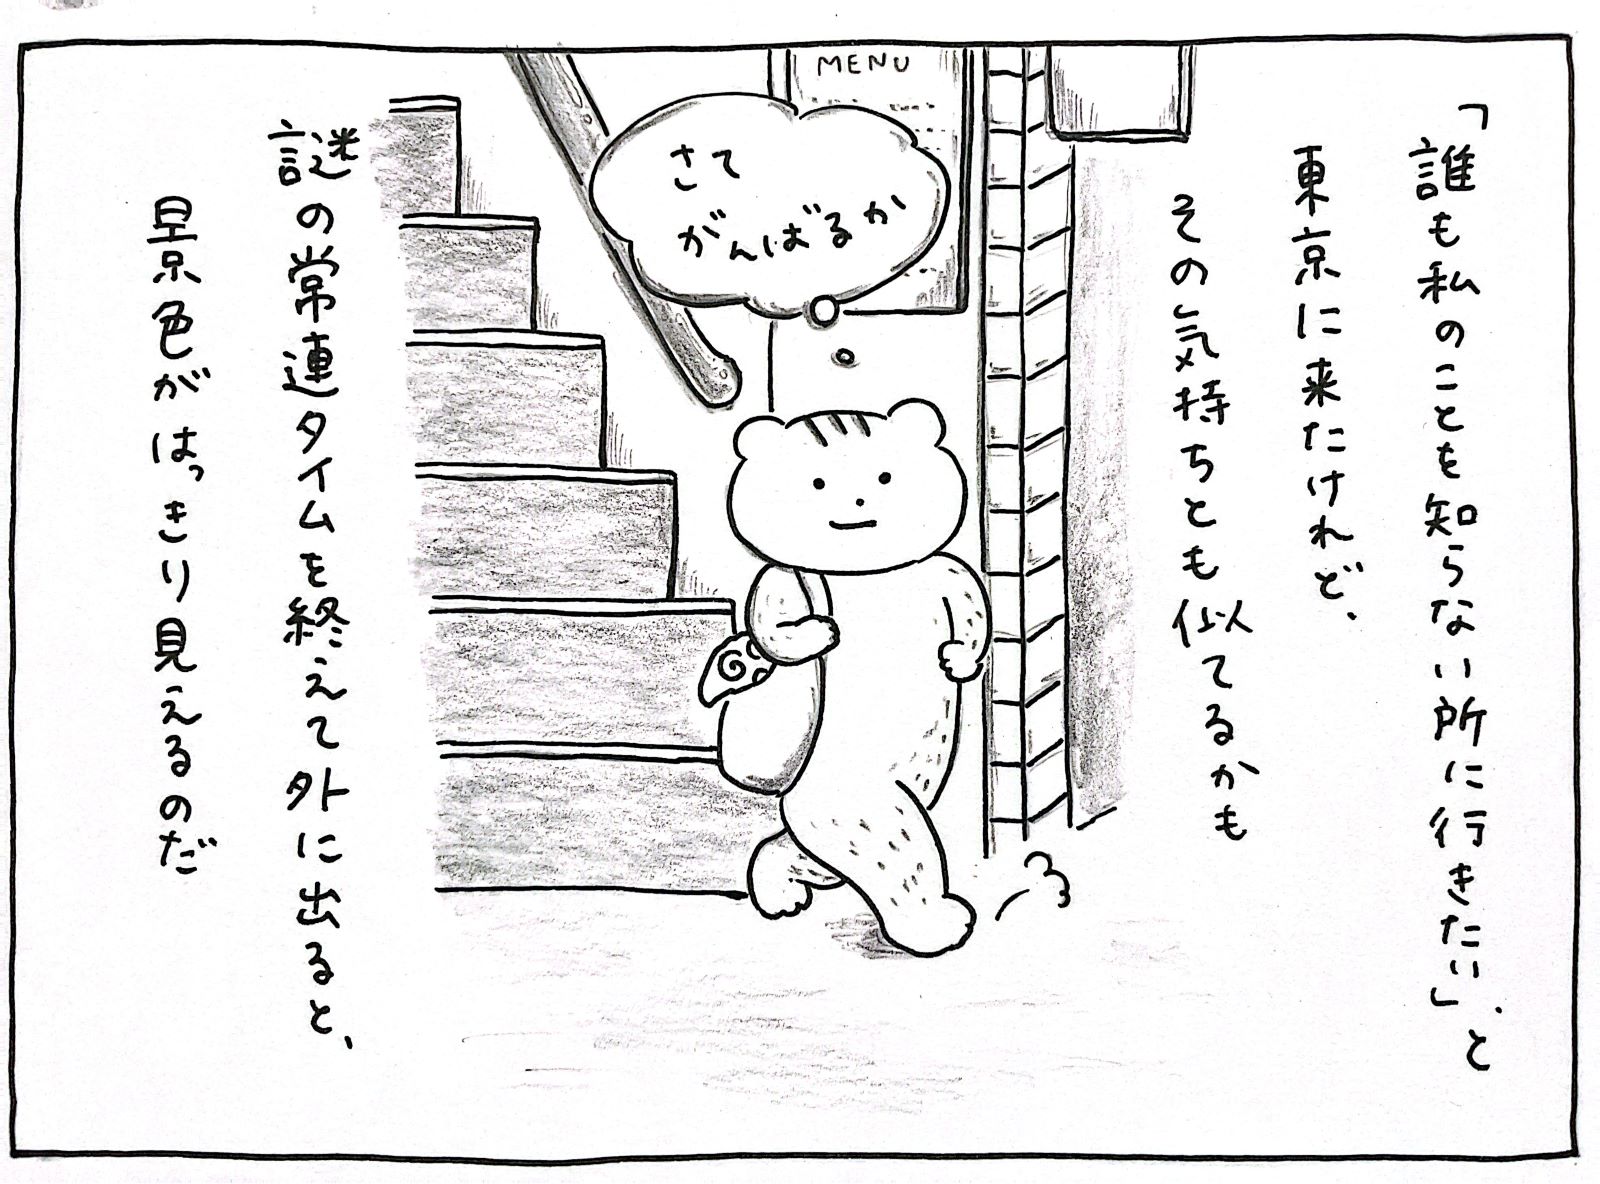 「誰も私のことを知らない所に行きたい」、と
東京に来たけれど、
その気持ちとも似てるかも
MENU
さて
がんばるか
謎の常連タイムを終えて外に出ると、
景色がはっきり見えるのだ